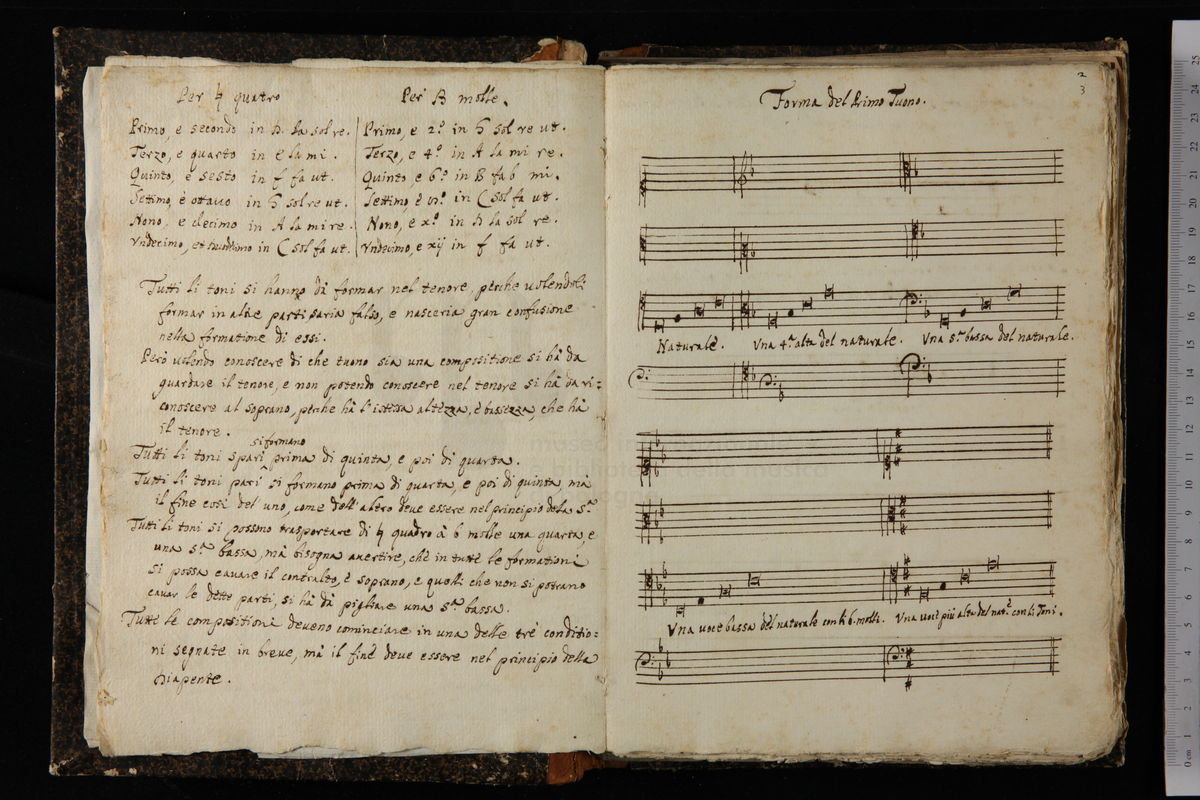 Per ♮ quatro
Primo, e secondo in D la sol re.
Terzo, e quarto in e la mi.
Quinto, e sesto in f fa ut.
Settimo, e ottauo in G sol re ut.
Nono, e decimo in A la mi re.
Vndecimo, et duodecimo in C sol fa ut.
Per B molle.
Primo, e 2.º in G sol re ut.
Terzo, e 4.º in A la mi re.
Quinto, e 6.º in B fa b mi.
Settimo, è in C sol fa ut.
Nono, e x.º in D la sol re.
Vndecimo, e xij in f fa ut.
Tutti li toni si hanno di formar nel tenore, perche uolendoli
formar in altre parti saria falso, e nasceria gran confusione
nella formatione di essi.
Però uolendo conoscere di che tuono sia una compositione si hà da
guardare il tenore, e non potendo conoscere nel tenore si hà da ri=
conoscere al soprano, perche hà l'istessa altezza, è bassezza, che hà
il tenore.
si formano
Tutti li toni spari prima di quinta, e poi di quarta.
Tutti li toni pari si formano prima di quarta, e poi di quinta, ma
il fine così del uno, come dell'altro deue essere nel principio dela 5.ª
Tutti li toni si possono trasportare di ♮ quadro à b molle una quarta, e
una 5.ª bassa, mà bisogna auertire, chè in tutte le formationi
si possa cauare il contralto, è soprano, e quelli che non si potrano
cauar le dette parti, si hà dà pigliare una 5.ª bassa.
Tutte le compositioni deueno cominciare in una delle trè conditio=
ni segnate in breue, mà il fine deue essere nel principio della
Diapente.
2
3
Forma del Primo Tuono.
Naturale. Vna 4.ª alta del naturale. Vna 5.ª bassa del naturale.
Vna uoce bassa del naturale con li b molli. Vna uoce più alta del nat.e con li Toni.
museo internazionale
e biblioteca della musica